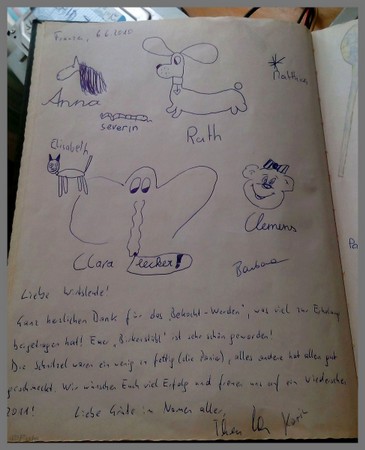 6.6.2010
Matthias
Anna
severin
Ruth
Elisabeth
Clemens
Clara
lecker!
Barbara
Liebe Wirtsleute!
Ganz herzlichen Dank für das „Bekocht-Werden", was viel zur Erholung
beigetragen hat! Euer „Birkenstübl" ist sehr schön geworden!
Die Schnitzel waren ein wenig zu fettig (die Panier), alles andere hat allen gut
geschmeckt. Wir wünschen Euch viel Erfolg und freuen uns auf ein Wiedersehen
2011!
Liebe Grüße im Namen aller,
Karin